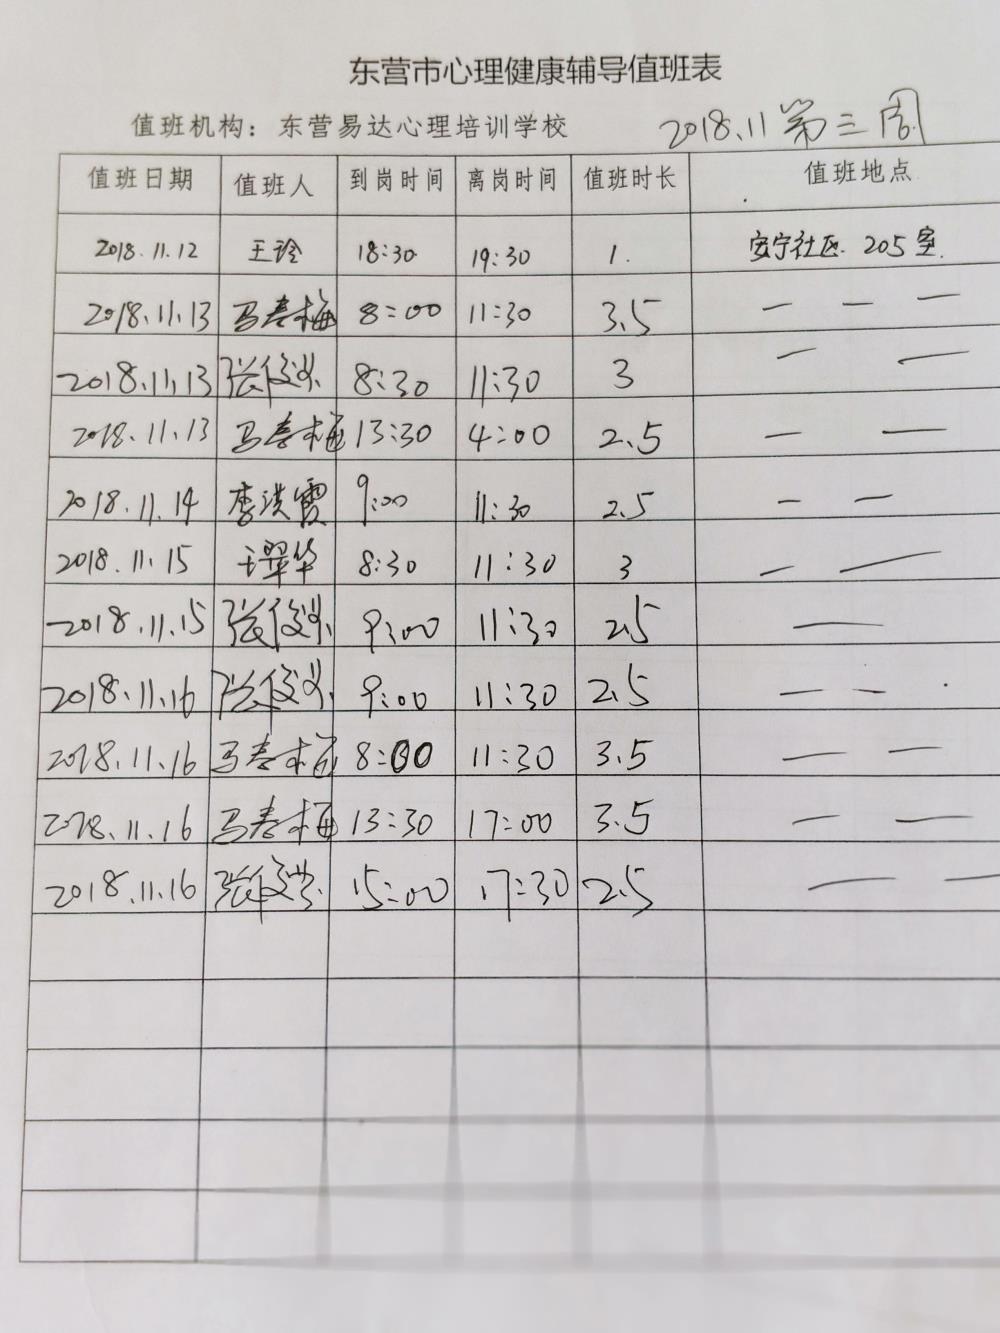 东营市心理健康辅导值班表
值班机构：东营易达心理培训学校 2018.11 第三周
值班日期 值班人 到岗时间 离岗时间 值班时长 值班地点
2018.11.12 王玲 18:30 19:30 1. 安宁社区 205室.
2018.11.13 马春梅 8:00 11:30 3.5 — — —
2018.11.13 8:30 11:30 3 — —
2018.11.13 马春梅 13:30 4:00 2.5 — —
2018.11.14 李洪霞 9:00 11:30 2.5 — —
2018.11.15 王翠华 8:30 11:30 3 — —
2018.11.15 9:00 11:30 2.5 —
2018.11.16 9:00 11:30 2.5 — —
2018.11.16 马春梅 8:00 11:30 3.5 — —
2018.11.16 马春梅 13:30 17:00 3.5 — —
2018.11.16 15:00 17:30 2.5 — —